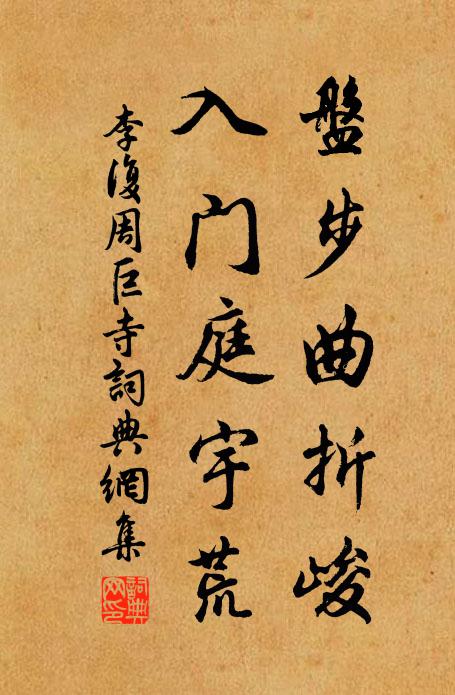 盤步曲折峻
入門庭宇荒
李復周巨寺詞典網集
詞典網印